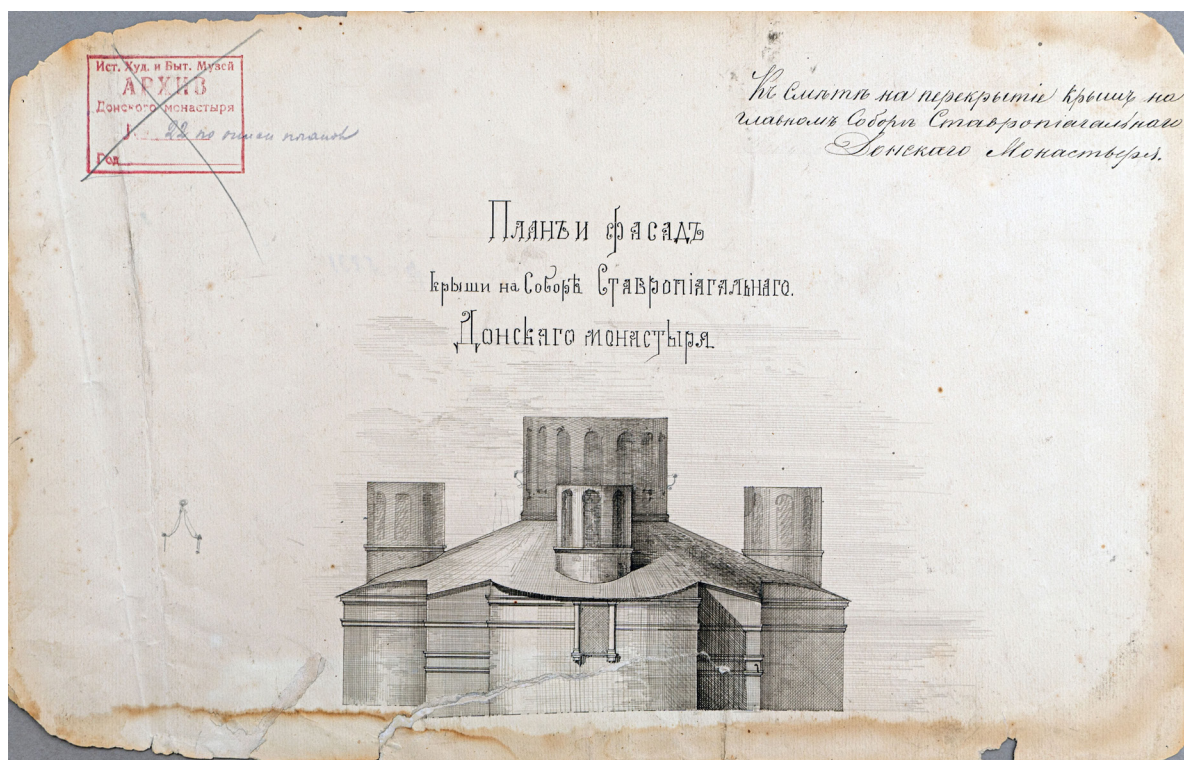 Ист. Худ. и Быт. Музей
АРХИВ
Донского монастыря
22 по описи планов
Год
Къ Смѣтѣ на перекрытіе крышъ на
главномъ Соборѣ Ставропiагальнаго
Донскаго Монастыря.
Планъ и фасадъ
крыши на Соборѣ Ставропiагальнаго.
Донскаго монастыря